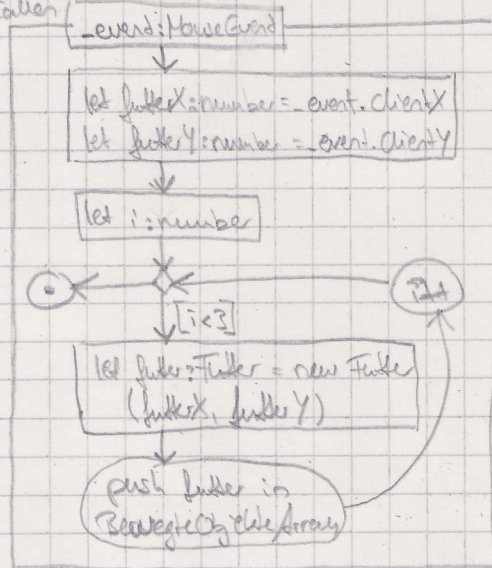 _event:MouseEvent
let futterX:number=_event.clientX
let futterY:number=_event.clientY
let i:number
i++
[i<3]
let futter:Futter = new Futter
(futterX, futterY)
push futter in
BewegteObjekteArray